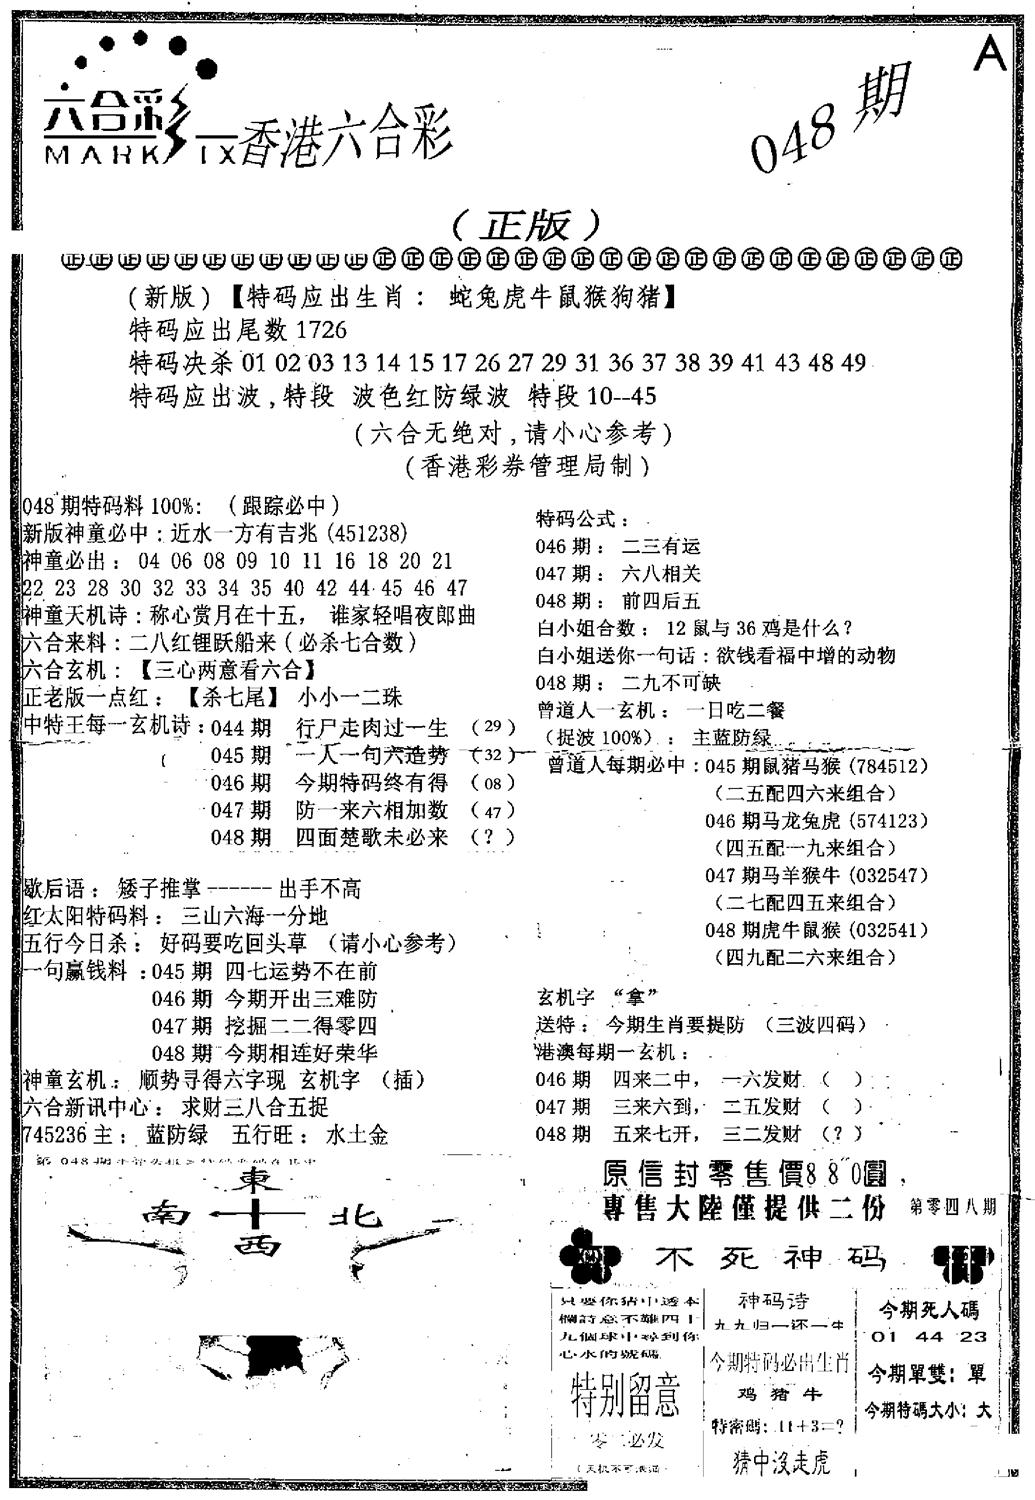 A
六合彩
MARK SIX 香港六合彩
048期
（正版）
正正正正正正正正正正正正正正正正正正正正正正正正正正正正正正正正
（新版）【特码应出生肖： 蛇兔虎牛鼠猴狗猪】
特码应出尾数 1726
特码决杀 01 02 03 13 14 15 17 26 27 29 31 36 37 38 39 41 43 48 49
特码应出波,特段 波色红防绿波 特段 10--45
（六合无绝对,请小心参考）
（香港彩券管理局制）
048 期特码料 100%: （跟踪必中）
新版神童必中:近水一方有吉兆 (451238)
神童必出: 04 06 08 09 10 11 16 18 20 21
22 23 28 30 32 33 34 35 40 42 44 45 46 47
神童天机诗:称心赏月在十五, 谁家轻唱夜郎曲
六合来料:二八红锂跃船来(必杀七合数)
六合玄机:【三心两意看六合】
正老版一点红:【杀七尾】 小小一二珠
中特王每一玄机诗:044 期 行尸走肉过一生 (29)
045 期 一人一句六造势 (32)
046 期 今期特码终有得 (08)
047 期 防一来六相加数 (47)
048 期 四面楚歌未必来 (?)
歇后语: 矮子推掌------出手不高
红太阳特码料: 三山六海一分地
五行今日杀: 好码要吃回头草 （请小心参考）
一句赢钱料:045 期 四七运势不在前
046 期 今期开出三难防
047 期 挖掘二二得零四
048 期 今期相连好荣华
神童玄机: 顺势寻得六字现 玄机字 （插）
六合新讯中心: 求财三八合五捉
745236 主: 蓝防绿 五行旺: 水土金
特码公式:
046 期: 二三有运
047 期: 六八相关
048 期: 前四后五
白小姐合数: 12 鼠与 36 鸡是什么?
白小姐送你一句话:欲钱看福中增的动物
048 期: 二九不可缺
曾道人一玄机: 一日吃二餐
（捉波 100%）: 主蓝防绿
曾道人每期必中:045 期鼠猪马猴 (784512)
（二五配四六来组合）
046 期马龙兔虎 (574123)
（四五配一九来组合）
047 期马羊猴牛 (032547)
（二七配四五来组合）
048 期虎牛鼠猴 (032541)
（四九配二六来组合）
玄机字 “拿”
送特: 今期生肖要提防 （三波四码）
港澳每期一玄机:
046 期 四来二中, 一六发财 ( )
047 期 三来六到, 二五发财 ( )
048 期 五来七开, 三二发财 (?)
東
南 北
西
原信封零售價880圓
專售大陸僅提供二份 第零四八期
不死神码
只要你猜中透本
欄詩意不難四十
九個球中尋到你
心水的號碼
特别留意
零二必发
神码诗
九九归一还一生
今期特码必出生肖
鸡 猪 牛
特密碼: 11+3=?
猜中沒走虎
今期死人碼
01 44 23
今期單雙: 單
今期特碼大小: 大